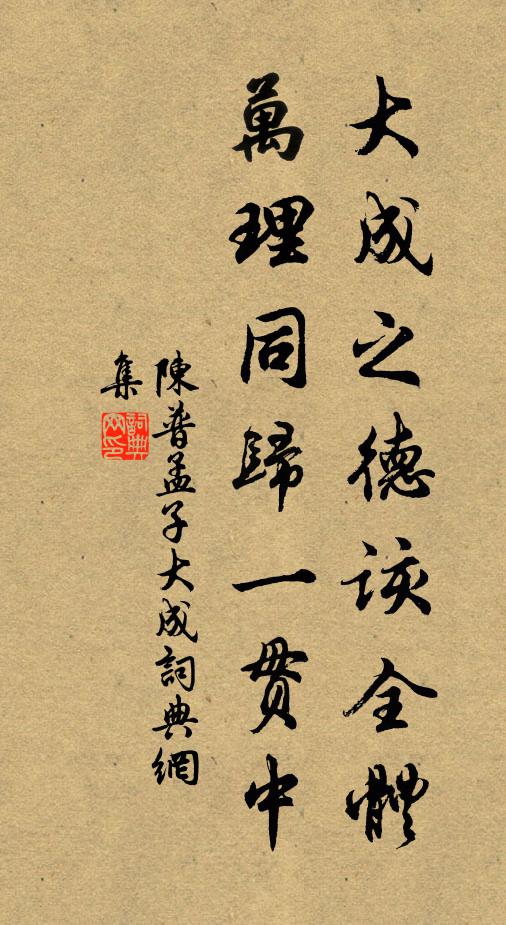 大成之德該全體
萬理同歸一貫中
陳普孟子大成詞典網
集
詞典
網印